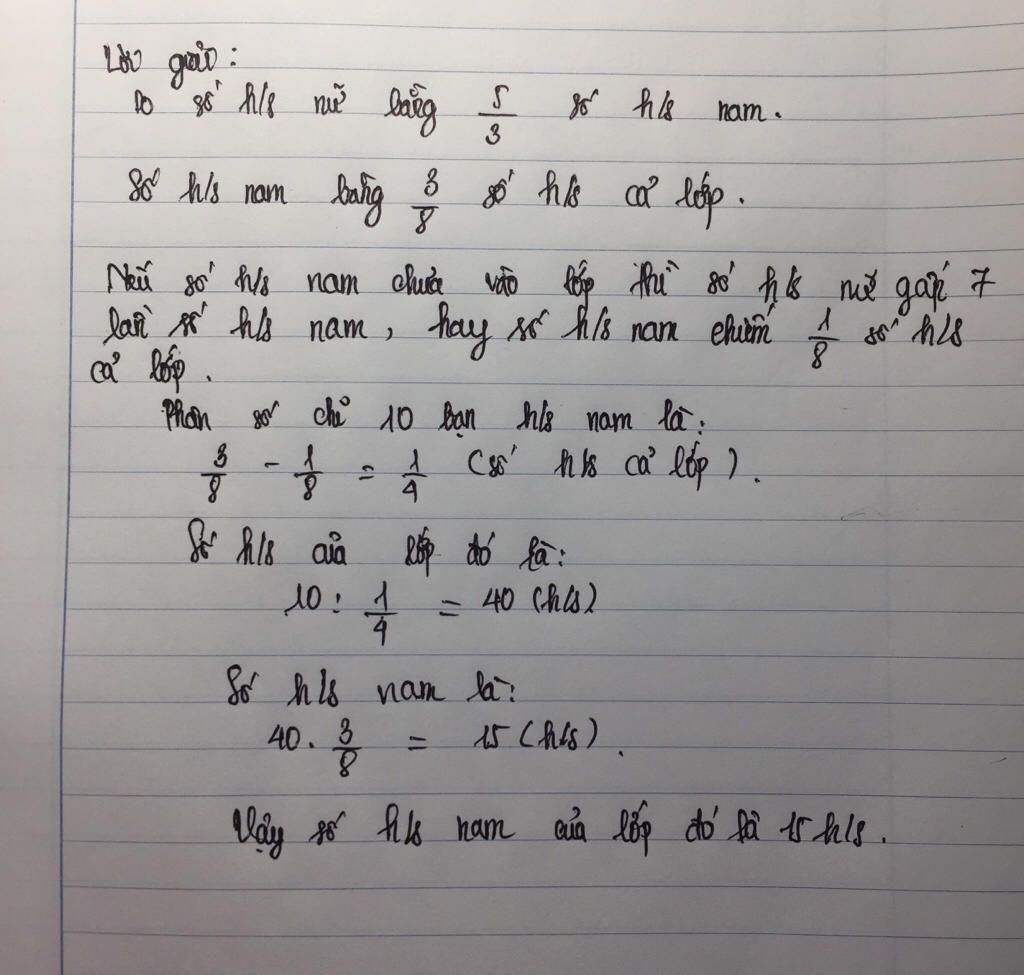 Lời giải:
Do số h/s nữ bằng 5/3 số h/s nam.
Số h/s nam bằng 3/8 số h/s cả lớp.
Nếu số h/s nam chưa vào lớp thì số h/s nữ gấp 7
lần số h/s nam, hay số h/s nam chiếm 1/8 số h/s
cả lớp.
Phân số chỉ 10 bạn h/s nam là:
3/8 - 1/8 = 1/4 (số h/s cả lớp).
Số h/s của lớp đó là:
10 : 1/4 = 40 (h/s)
Số h/s nam là:
40 . 3/8 = 15 (h/s).
Vậy số h/s nam của lớp đó là 15 h/s.